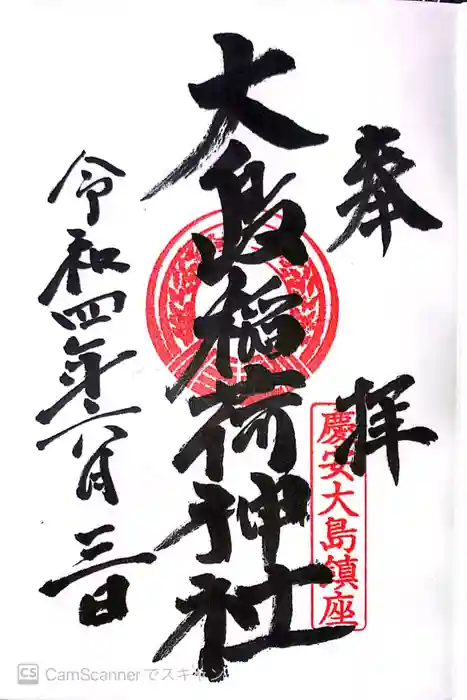 奉拝
慶安大島鎮座
大島稲荷神社
令和四年六月三日
CS CamScannerでスキャン